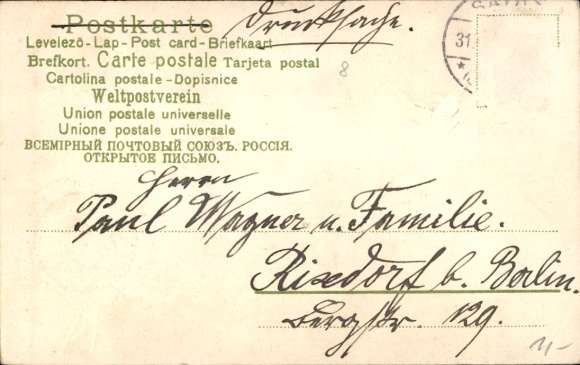 Postkarte Drucksache.
Levelező-Lap-Post card-Briefkaart
Brefkort. Carte postale Tarjeta postal
Cartolina postale-Dopisnice
Weltpostverein
Union postale universelle
Unione postale universale
ВСЕМІРНЫЙ ПОЧТОВЫЙ СОЮЗЪ. РОССІЯ.
ОТКРЫТОЕ ПИСЬМО.
31
8
Herrn
Paul Wagner u. Familie.
Rixdorf b. Berlin.
Bergstr. 129.